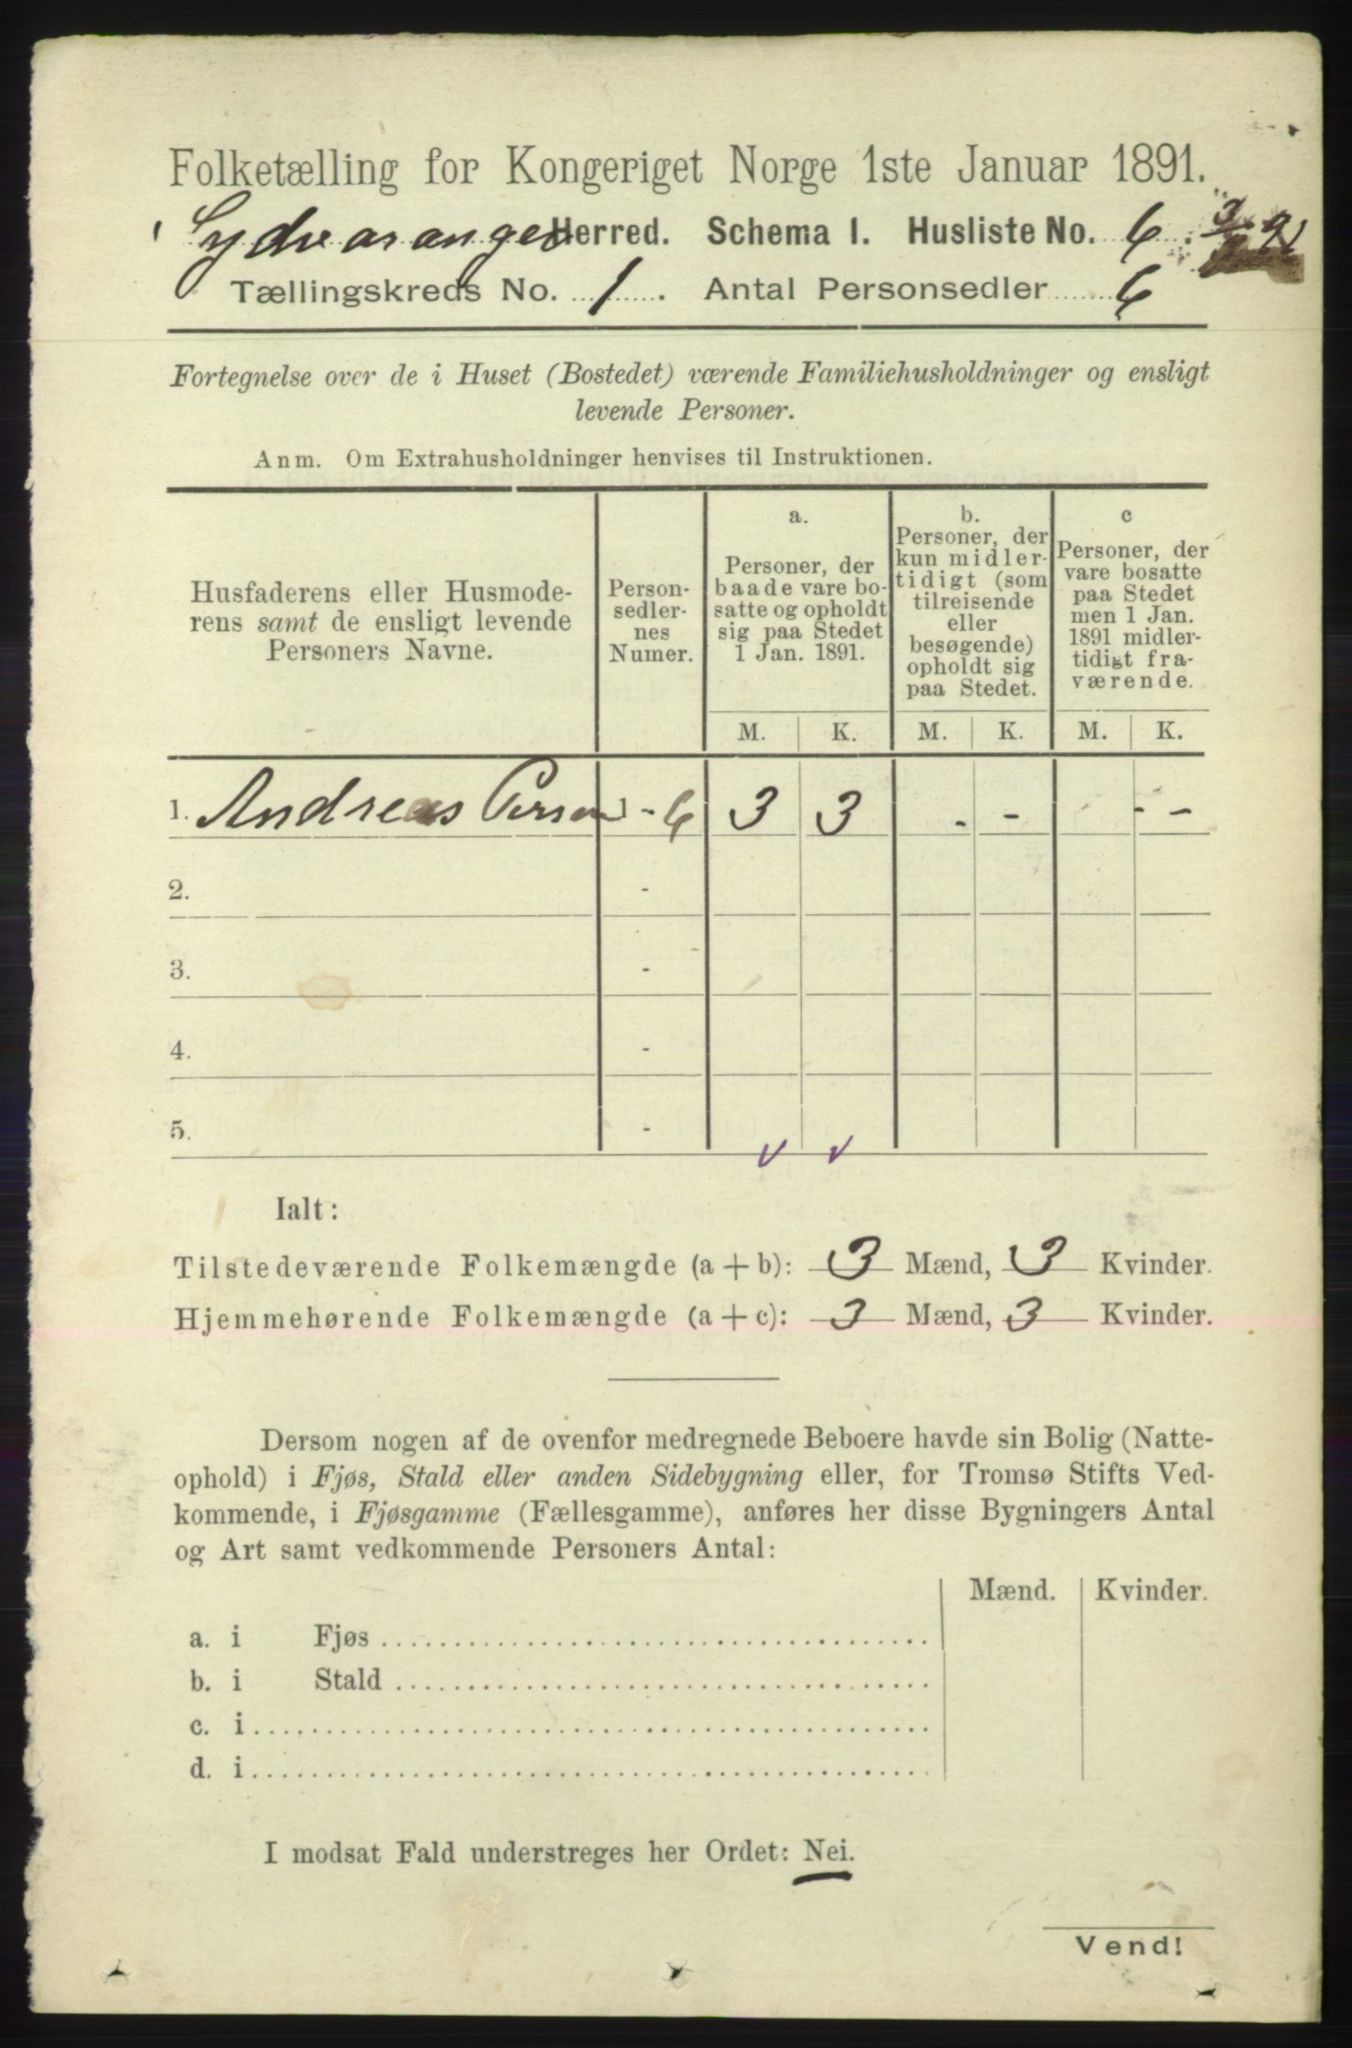 Folketælling for Kongeriget Norge 1ste Januar 1891.
Sydvaranger Herred. Schema 1. Husliste No. 6
Tællingskreds No. 1. Antal Personsedler 6
Fortegnelse over de i Huset (Bostedet) værende Familiehusholdninger og ensligt
levende Personer.
Anm. Om Extrahusholdninger henvises til Instruktionen.
Husfaderens eller Husmode-
rens samt de ensligt levende
Personers Navne.
Person-
sedler-
nes
Numer.
a.
Personer, der
baade vare bo-
satte og opholdt
sig paa Stedet
1 Jan. 1891.
b.
Personer, der
kun midler-
tidigt (som
tilreisende
eller
besøgende)
opholdt sig
paa Stedet.
c
Personer, der
vare bosatte
paa Stedet
men 1 Jan.
1891 midler-
tidigt fra-
værende.
M. K. M. K. M. K.
1. Andreas Persen 1 - 6 3 3 - - - -
2. -
3. -
4. -
5. -
Ialt:
Tilstedeværende Folkemængde (a + b): 3 Mænd, 3 Kvinder.
Hjemmehørende Folkemængde (a + c): 3 Mænd, 3 Kvinder.
Dersom nogen af de ovenfor medregnede Beboere havde sin Bolig (Natte-
ophold) i Fjøs, Stald eller anden Sidebygning eller, for Tromsø Stifts Ved-
kommende, i Fjøsgamme (Fællesgamme), anføres her disse Bygningers Antal
og Art samt vedkommende Personers Antal:
Mænd. Kvinder.
a. i Fjøs
b. i Stald
c. i
d. i
I modsat Fald understreges her Ordet: Nei.
Vend!